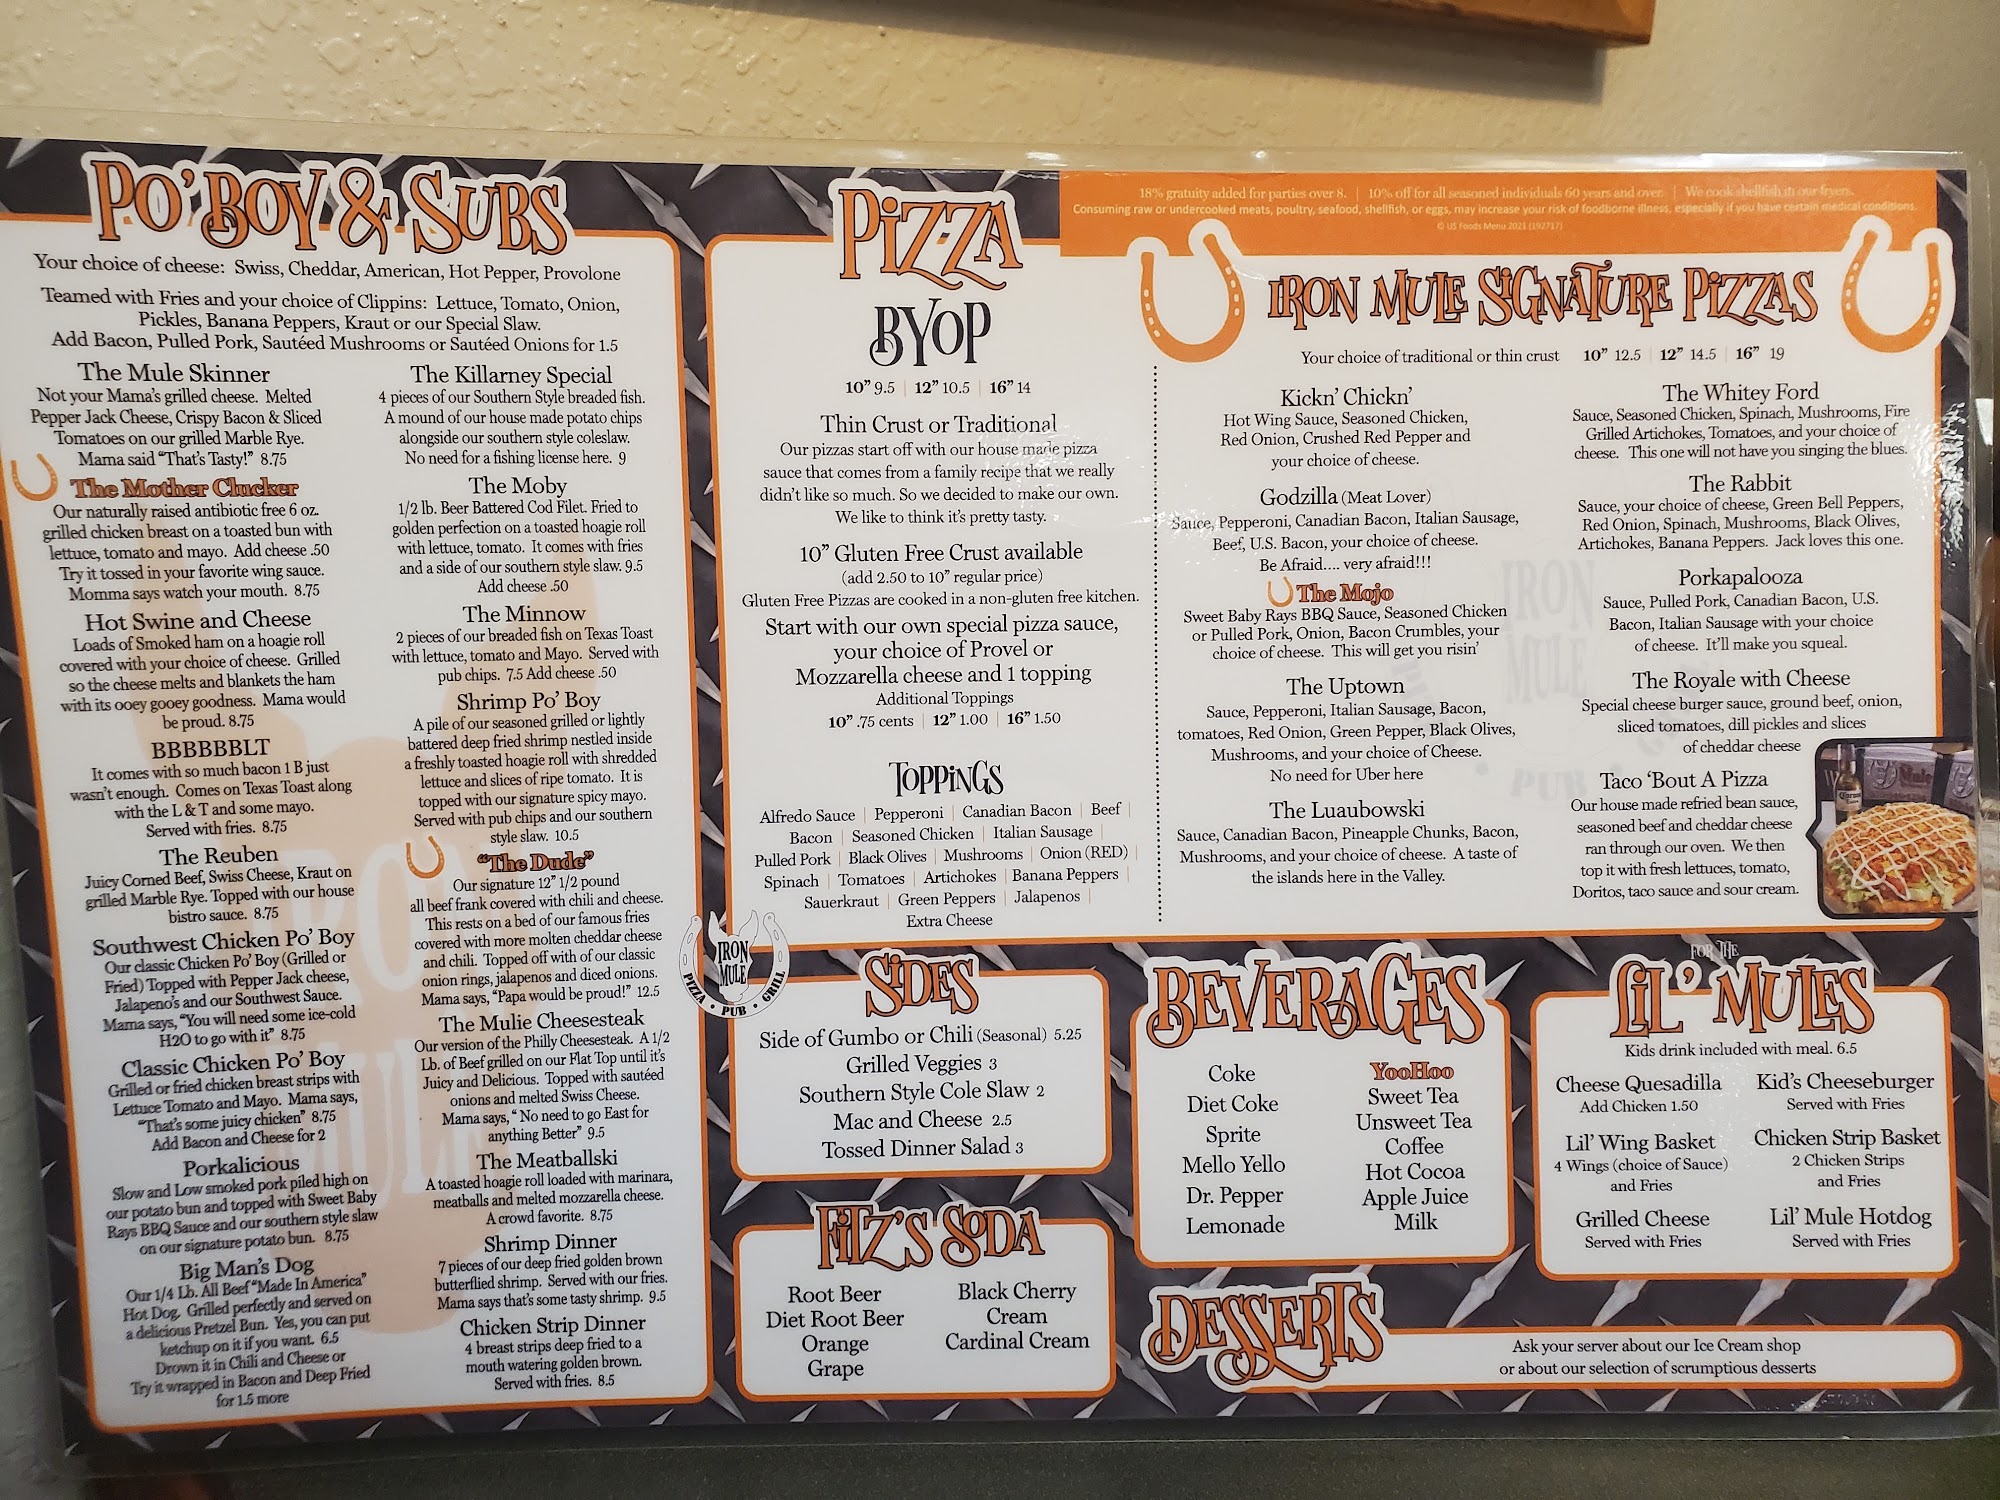 PO' BOY & SUBS
Your choice of cheese: Swiss, Cheddar, American, Hot Pepper, Provolone
Teamed with Fries and your choice of Clippins: Lettuce, Tomato, Onion,
Pickles, Banana Peppers, Kraut or our Special Slaw.
Add Bacon, Pulled Pork, Sautéed Mushrooms or Sautéed Onions for 1.5
The Mule Skinner
Not your Mama's grilled cheese. Melted
Pepper Jack Cheese, Crispy Bacon & Sliced
Tomatoes on our grilled Marble Rye.
Mama said "That's Tasty!" 8.75
The Mother Clucker
Our naturally raised antibiotic free 6 oz.
grilled chicken breast on a toasted bun with
lettuce, tomato and mayo. Add cheese .50
Try it tossed in your favorite wing sauce.
Momma says watch your mouth. 8.75
Hot Swine and Cheese
Loads of Smoked ham on a hoagie roll
covered with your choice of cheese. Grilled
so the cheese melts and blankets the ham
with its ooey gooey goodness. Mama would
be proud. 8.75
BBBBBBLT
It comes with so much bacon 1 B just
wasn't enough. Comes on Texas Toast along
with the L & T and some mayo.
Served with fries. 8.75
The Reuben
Juicy Corned Beef, Swiss Cheese, Kraut on
grilled Marble Rye. Topped with our house
bistro sauce. 8.75
Southwest Chicken Po' Boy
Our classic Chicken Po' Boy (Grilled or
Fried) Topped with Pepper Jack cheese,
Jalapeno's and our Southwest Sauce.
Mama says, "You will need some ice-cold
H2O to go with it" 8.75
Classic Chicken Po' Boy
Grilled or fried chicken breast strips with
Lettuce Tomato and Mayo. Mama says,
"That's some juicy chicken" 8.75
Add Bacon and Cheese for 2
Porkalicious
Slow and Low smoked pork piled high on
our potato bun and topped with Sweet Baby
Rays BBQ Sauce and our southern style slaw
on our signature potato bun. 8.75
Big Man's Dog
Our 1/4 Lb. All Beef "Made In America"
Hot Dog. Grilled perfectly and served on
a delicious Pretzel Bun. Yes, you can put
ketchup on it if you want. 6.5
Drown it in Chili and Cheese or
Try it wrapped in Bacon and Deep Fried
for 1.5 more
The Killarney Special
4 pieces of our Southern Style breaded fish.
A mound of our house made potato chips
alongside our southern style coleslaw.
No need for a fishing license here. 9
The Moby
1/2 lb. Beer Battered Cod Filet. Fried to
golden perfection on a toasted hoagie roll
with lettuce, tomato. It comes with fries
and a side of our southern style slaw. 9.5
Add cheese .50
The Minnow
2 pieces of our breaded fish on Texas Toast
with lettuce, tomato and Mayo. Served with
pub chips. 7.5 Add cheese .50
Shrimp Po' Boy
A pile of our seasoned grilled or lightly
battered deep fried shrimp nestled inside
a freshly toasted hoagie roll with shredded
lettuce and slices of ripe tomato. It is
topped with our signature spicy mayo.
Served with pub chips and our southern
style slaw. 10.5
"The Dude"
Our signature 12" 1/2 pound
all beef frank covered with chili and cheese.
This rests on a bed of our famous fries
covered with more molten cheddar cheese
and chili. Topped off with of our classic
onion rings, jalapenos and diced onions.
Mama says, "Papa would be proud!" 12.5
The Mulie Cheesesteak
Our version of the Philly Cheesesteak. A 1/2
Lb. of Beef grilled on our Flat Top until it's
Juicy and Delicious. Topped with sautéed
onions and melted Swiss Cheese.
Mama says, " No need to go East for
anything Better" 9.5
The Meatballski
A toasted hoagie roll loaded with marinara,
meatballs and melted mozzarella cheese.
A crowd favorite. 8.75
Shrimp Dinner
7 pieces of our deep fried golden brown
butterflied shrimp. Served with our fries.
Mama says that's some tasty shrimp. 9.5
Chicken Strip Dinner
4 breast strips deep fried to a
mouth watering golden brown.
Served with fries. 8.5
PIZZA
BYOP
10" 9.5 | 12" 10.5 | 16" 14
Thin Crust or Traditional
Our pizzas start off with our house made pizza
sauce that comes from a family recipe that we really
didn't like so much. So we decided to make our own.
We like to think it's pretty tasty.
10" Gluten Free Crust available
(add 2.50 to 10" regular price)
Gluten Free Pizzas are cooked in a non-gluten free kitchen.
Start with our own special pizza sauce,
your choice of Provel or
Mozzarella cheese and 1 topping
Additional Toppings
10" .75 cents | 12" 1.00 | 16" 1.50
TOPPINGS
Alfredo Sauce | Pepperoni | Canadian Bacon | Beef |
Bacon | Seasoned Chicken | Italian Sausage |
Pulled Pork | Black Olives | Mushrooms | Onion (RED) |
Spinach | Tomatoes | Artichokes | Banana Peppers |
Sauerkraut | Green Peppers | Jalapenos |
Extra Cheese
18% gratuity added for parties over 8. | 10% off for all seasoned individuals 60 years and over. | We cook shellfish in our fryers.
Consuming raw or undercooked meats, poultry, seafood, shellfish, or eggs, may increase your risk of foodborne illness, especially if you have certain medical conditions.
© US Foods Menu 2021 (192717)
IRON MULE SIGNATURE PIZZAS
Your choice of traditional or thin crust 10" 12.5 | 12" 14.5 | 16" 19
Kickn' Chickn'
Hot Wing Sauce, Seasoned Chicken,
Red Onion, Crushed Red Pepper and
your choice of cheese.
Godzilla (Meat Lover)
Sauce, Pepperoni, Canadian Bacon, Italian Sausage,
Beef, U.S. Bacon, your choice of cheese.
Be Afraid.... very afraid!!!
The Mojo
Sweet Baby Rays BBQ Sauce, Seasoned Chicken
or Pulled Pork, Onion, Bacon Crumbles, your
choice of cheese. This will get you risin'
The Uptown
Sauce, Pepperoni, Italian Sausage, Bacon,
tomatoes, Red Onion, Green Pepper, Black Olives,
Mushrooms, and your choice of Cheese.
No need for Uber here
The Luaubowski
Sauce, Canadian Bacon, Pineapple Chunks, Bacon,
Mushrooms, and your choice of cheese. A taste of
the islands here in the Valley.
The Whitey Ford
Sauce, Seasoned Chicken, Spinach, Mushrooms, Fire
Grilled Artichokes, Tomatoes, and your choice of
cheese. This one will not have you singing the blues.
The Rabbit
Sauce, your choice of cheese, Green Bell Peppers,
Red Onion, Spinach, Mushrooms, Black Olives,
Artichokes, Banana Peppers. Jack loves this one.
Porkapalooza
Sauce, Pulled Pork, Canadian Bacon, U.S.
Bacon, Italian Sausage with your choice
of cheese. It'll make you squeal.
The Royale with Cheese
Special cheese burger sauce, ground beef, onion,
sliced tomatoes, dill pickles and slices
of cheddar cheese
Taco 'Bout A Pizza
Our house made refried bean sauce,
seasoned beef and cheddar cheese
ran through our oven. We then
top it with fresh lettuces, tomato,
Doritos, taco sauce and sour cream.
IRON
MULE
PUB
IRON
MULE
PIZZA • PUB • GRILL
SIDES
Side of Gumbo or Chili (Seasonal) 5.25
Grilled Veggies 3
Southern Style Cole Slaw 2
Mac and Cheese 2.5
Tossed Dinner Salad 3
FITZ'S SODA
Root Beer
Diet Root Beer
Orange
Grape
Black Cherry
Cream
Cardinal Cream
BEVERAGES
Coke
Diet Coke
Sprite
Mello Yello
Dr. Pepper
Lemonade
YooHoo
Sweet Tea
Unsweet Tea
Coffee
Hot Cocoa
Apple Juice
Milk
FOR THE
LIL' MULES
Kids drink included with meal. 6.5
Cheese Quesadilla
Add Chicken 1.50
Lil' Wing Basket
4 Wings (choice of Sauce)
and Fries
Grilled Cheese
Served with Fries
Kid's Cheeseburger
Served with Fries
Chicken Strip Basket
2 Chicken Strips
and Fries
Lil' Mule Hotdog
Served with Fries
DESSERTS
Ask your server about our Ice Cream shop
or about our selection of scrumptious desserts